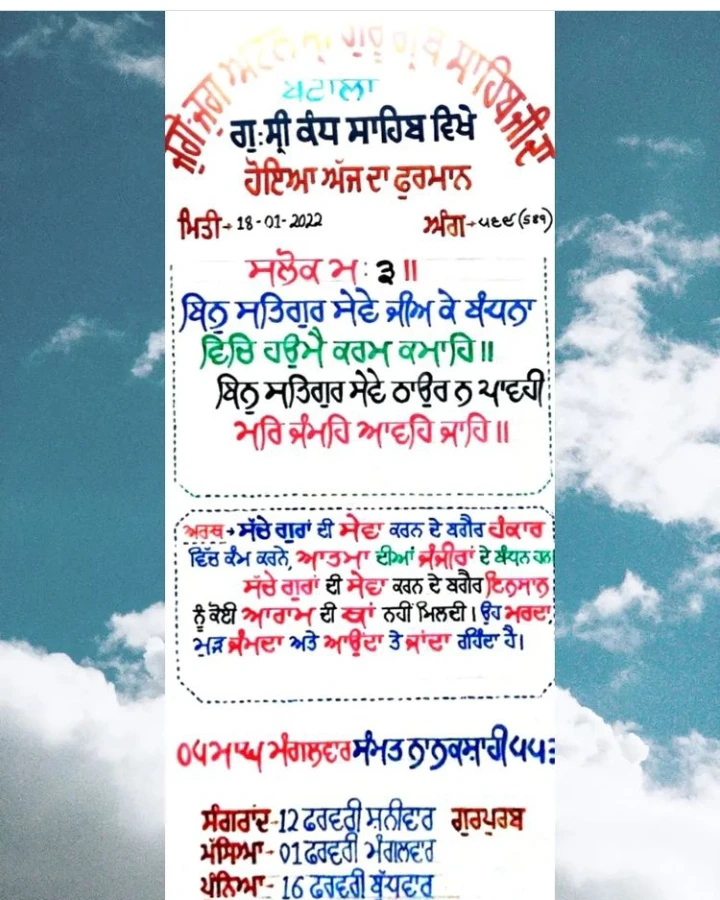 ਜੁਗੋ ਜੁਗ ਅਟੱਲ ਸ੍ਰੀ ਗੁਰੂ ਗ੍ਰੰਥ ਸਾਹਿਬ ਜੀ ਦਾ
ਬਟਾਲਾ
ਗੁ:ਸ੍ਰੀ ਕੰਧ ਸਾਹਿਬ ਵਿਖੇ
ਹੋਇਆ ਅੱਜ ਦਾ ਫੁਰਮਾਨ
ਮਿਤੀ→ 18-01-2022 ਅੰਗ→੫੮੯ (589)
ਸਲੋਕ ਮ: ੩ ॥
ਬਿਨੁ ਸਤਿਗੁਰ ਸੇਵੇ ਜੀਅ ਕੇ ਬੰਧਨਾ
ਵਿਚਿ ਹਉਮੈ ਕਰਮ ਕਮਾਹਿ॥
ਬਿਨੁ ਸਤਿਗੁਰ ਸੇਵੇ ਠਾਉਰ ਨ ਪਾਵਹੀ
ਮਰਿ ਜੰਮਹਿ ਆਵਹਿ ਜਾਹਿ॥
ਅਰਥ→ ਸੱਚੇ ਗੁਰਾਂ ਦੀ ਸੇਵਾ ਕਰਨ ਦੇ ਬਗੈਰ ਹੰਕਾਰ
ਵਿੱਚ ਕੰਮ ਕਰਨੇ, ਆਤਮਾ ਦੀਆਂ ਜੰਜੀਰਾਂ ਦੇ ਬੰਧਨ ਹਨ
ਸੱਚੇ ਗੁਰਾਂ ਦੀ ਸੇਵਾ ਕਰਨ ਦੇ ਬਗੈਰ ਇਨਸਾਨ
ਨੂੰ ਕੋਈ ਆਰਾਮ ਦੀ ਥਾਂ ਨਹੀਂ ਮਿਲਦੀ। ਉਹ ਮਰਦਾ,
ਮੁੜ ਜੰਮਦਾ ਅਤੇ ਆਉਂਦਾ ਤੇ ਜਾਂਦਾ ਰਹਿੰਦਾ ਹੈ।
੦੫ ਮਾਘ ਮੰਗਲਵਾਰ ਸੰਮਤ ਨਾਨਕਸ਼ਾਹੀ ੫੫੩
ਸੰਗਰਾਂਦ-12 ਫਰਵਰੀ ਸ਼ਨੀਵਾਰ ਗੁਰਪੁਰਬ
ਮੱਸਿਆ- 01 ਫਰਵਰੀ ਮੰਗਲਵਾਰ
ਪੰਨਿਆ- 16 ਫਰਵਰੀ ਬੁੱਧਵਾਰ